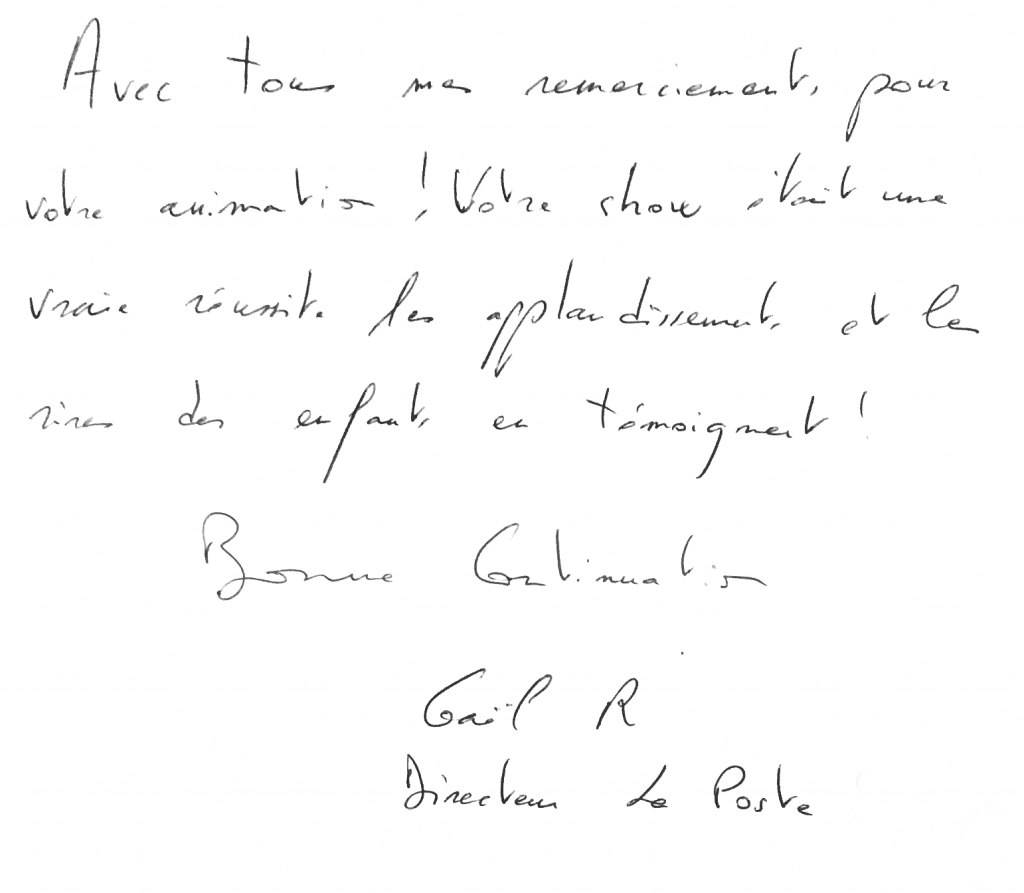 Avec tous mes remerciements pour
votre animation ! Votre show était une
vraie réussite les applaudissements et les
rires des enfants en témoignent !
Bonne Continuation
Gaël R
Directeur La Poste